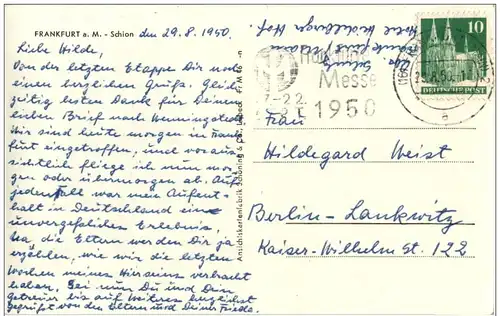 FRANKFURT a. M. - Schion den 29.8.1950.
Liebe Wilde,
Von der letzten Etappe Dir noch
einen herzlichen Gruß. Gleich-
zeitig besten Dank für Deinen
lieben Brief nach Wenningstedt.
Wir sind heute morgen in Frank-
furt eingetroffen, und voraus-
sichtlich fliege ich nun mor-
gen oder übermorgen ab. Auf
jeden Fall war mein Aufent-
halt in Deutschland ein
unvergeßliches Erlebnis.
Na die Eltern werden Dir ja
erzählen, wie wir die letzten
Wochen meines Hierseins verbracht
haben. Sei nun Du und Dein
Getreuer bis auf Weiteres herzlichst
gegrüßt von den Eltern und Deiner Frieda.
Ansichtskartenfabrik Schöning & Co., Lübeck
Frankfurt/Main
Hotel Heidelberger Hof
Messe
7-22.
1950
10
DEUTSCHE POST
a
Frau
Hildegard Weist
Berlin-Lankwitz
Kaiser-Wilhelm St. 122